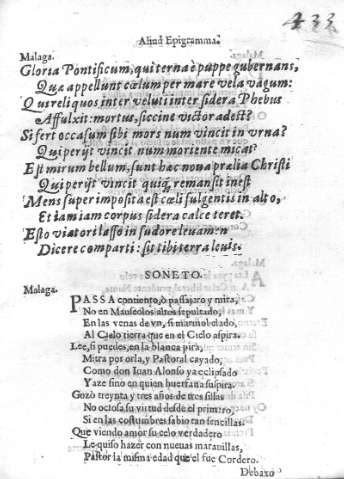 433
Aliud Epigramma.
Malaga.
Gloria Pontificum, qui terna è puppe gubernans,
Quæ appellunt cœlum per mare vela vagum:
Qui reliquos inter veluti inter sidera Phebus
Affulxit: mortus, siccine victor adest?
Si fert occasum sibi mors num vincit in vrna?
Qui perijt vincit num moriente micat?
Est mirum bellum, sunt hæc noua prælia Christi
Qui perijt vincit quiq, remansit inest
Mens super imposita est cœli fulgentis in alto,
Et iam iam corpus sidera calce teret.
Esto viator lasso in sudore leuamen
Dicere comparti: sit tibi terra leuis.
SONETO.
Malaga.
PASSA contiento, ò passajaro y mira,
No en Mauseolos altos sepultado,
En las venas de vn, si marmol elado,
Al Cielo tierra que en el Cielo aspira.
Lee, si puedes, en la blanca pira,
Mitra por orla, y Pastoral cayado,
Como don Iuan Alonso ya eclipsado
Yaze sino en quien huerfana suspira.
Gozò treynta y tres años de tres sillas
No ociosa su virtud desde el primero,
Si en las costumbres sabio tan sencillas.
Que viendo amor su celo verdadero
Le quiso hazer con nueuas marauillas,
Pastor la misma edad que el fue Cordero.
Debaxo